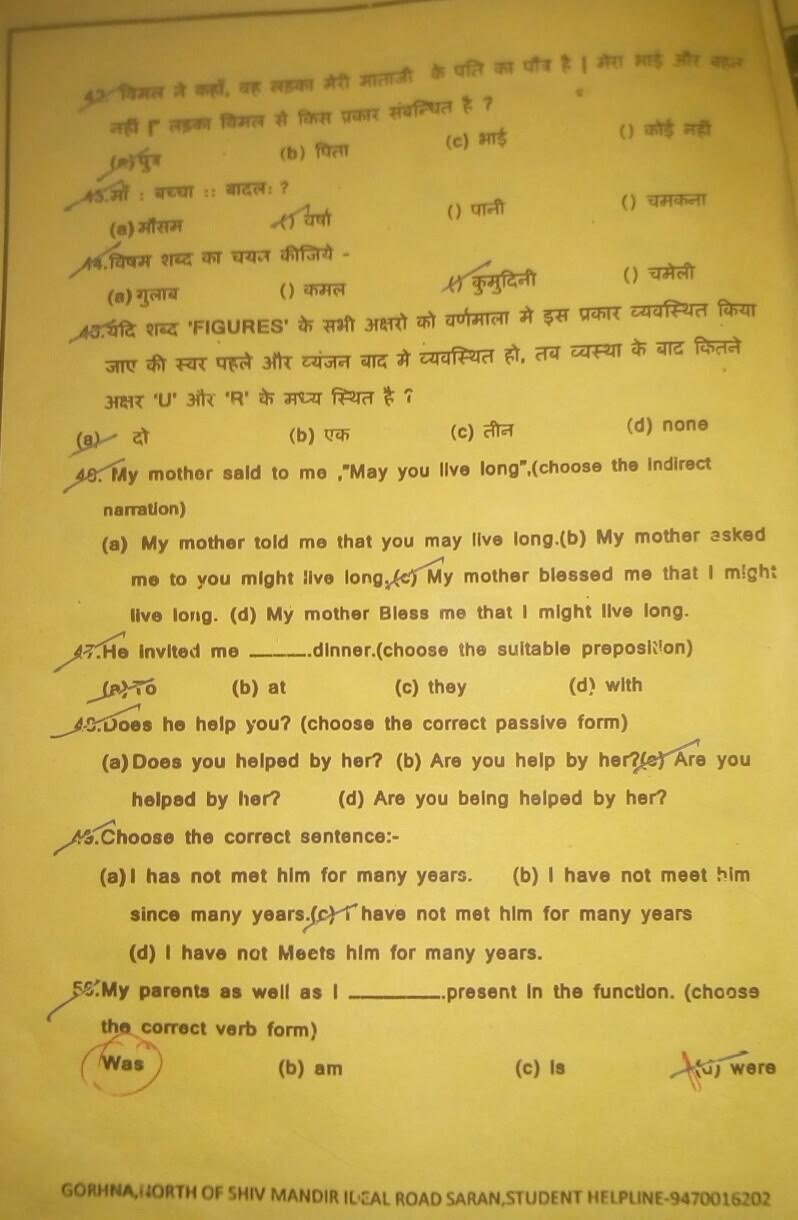 42. विमल ने कहाँ, वह लडका मेरी माताजी के पति का पौत्र है | मेरा भाई और बहन
नही |" लडका विमल से किस प्रकार संबन्धित है ?
(a) पुत्र (b) पिता (c) भाई () कोई नही
43.माँ : बच्चा :: बादल: ?
(a) मौसम () वर्षा () पानी () चमकना
44.विषम शब्द का चयन कीजिये -
(a) गुलाब () कमल () कुमुदिनी () चमेली
45.यदि शब्द 'FIGURES' के सभी अक्षरो को वर्णमाला मे इस प्रकार व्यवस्थित किया
जाए की स्वर पहले और व्यंजन बाद मे व्यवस्थित हो, तब व्वस्था के बाद कितने
अक्षर 'U' और 'R' के मध्य स्थित है ?
(a) दो (b) एक (c) तीन (d) none
46. My mother said to me ,"May you live long",(choose the indirect
narration)
(a) My mother told me that you may live long.(b) My mother asked
me to you might live long.(c) My mother blessed me that I might
live long. (d) My mother Bless me that I might live long.
47.He invited me ______.dinner.(choose the suitable preposition)
(a) To (b) at (c) they (d) with
48.Does he help you? (choose the correct passive form)
(a) Does you helped by her? (b) Are you help by her?(c) Are you
helped by her? (d) Are you being helped by her?
49.Choose the correct sentence:-
(a) I has not met him for many years. (b) I have not meet him
since many years.(c) I have not met him for many years
(d) I have not Meets him for many years.
50.My parents as well as I ________.present in the function. (choose
the correct verb form)
Was (b) am (c) Is (d) were
GORHNA,NORTH OF SHIV MANDIR IDEAL ROAD SARAN,STUDENT HELPLINE-9470016202